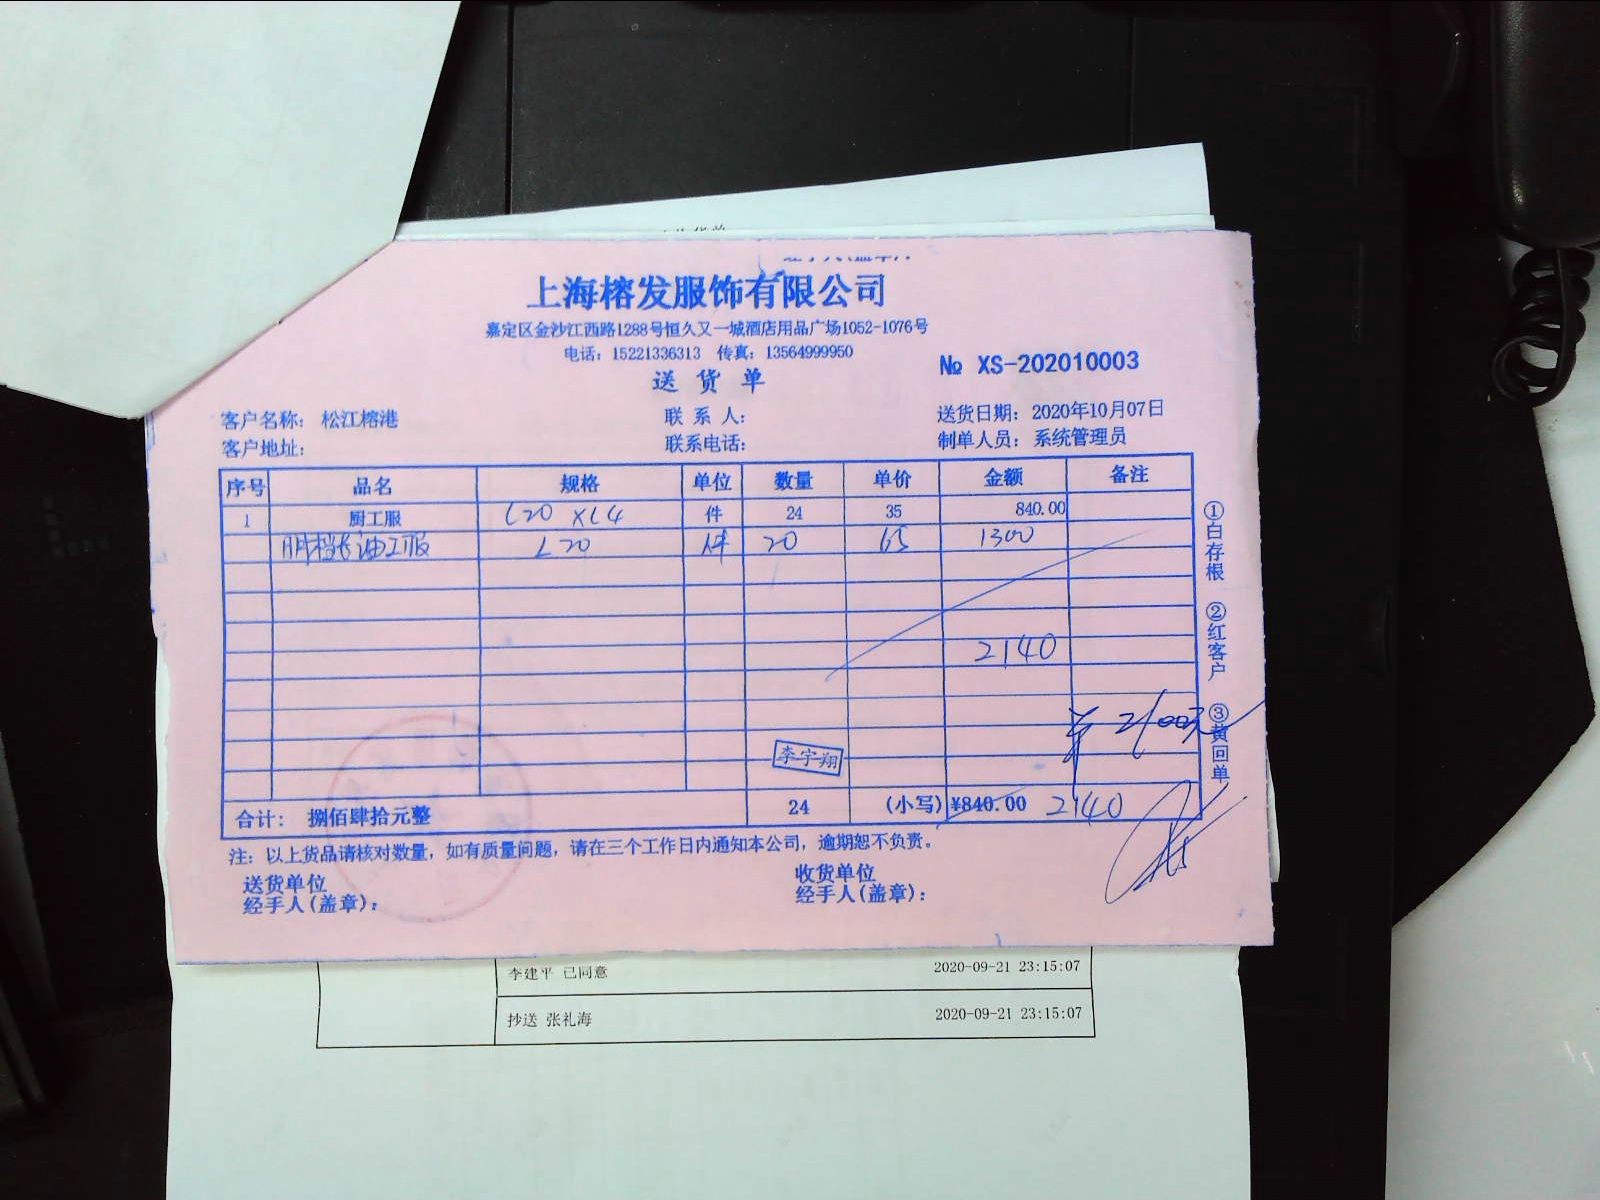 上海榕发服饰有限公司
嘉定区金沙江西路1288号恒久又一城酒店用品广场1052-1076号
电话：15221336313 传真：13564999950
№ XS-202010003
送货单
客户名称： 松江榕港 联系人： 送货日期： 2020年10月07日
客户地址： 联系电话： 制单人员： 系统管理员
序号 品名 规格 单位 数量 单价 金额 备注
1 厨工服 L20 XL4 件 24 35 840.00
明档长油工服 L20 件 20 65 1300
2140
¥ 2100元
李宇翔
合计： 捌佰肆拾元整 24 (小写) ¥840.00 2140
注：以上货品请核对数量，如有质量问题，请在三个工作日内通知本公司，逾期恕不负责。
送货单位 收货单位
经手人(盖章)： 经手人(盖章)：
①白存根 ②红客户 ③黄回单
李建平 已同意 2020-09-21 23:15:07
抄送 张礼海 2020-09-21 23:15:07